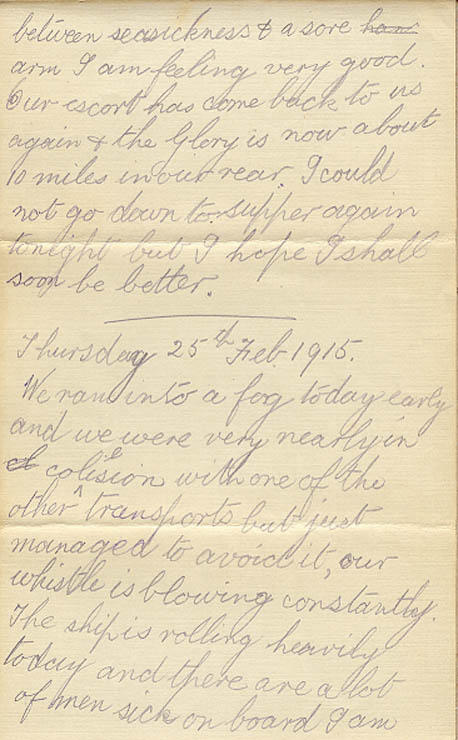 between seasickness & a sore
arm I am feeling very good.
Our escort has come back to us
again & the Glory is now about
10 miles in our rear. I could
not go down to supper again
tonight but I hope I shall
soon be better.
Thursday 25th Feb. 1915.
We ran into a fog today early
and we were very nearly in
colision with one of the
other transports but just
managed to avoid it, our
whistle is blowing constantly.
The ship is rolling heavily
today and there are a lot
of men sick on board I am